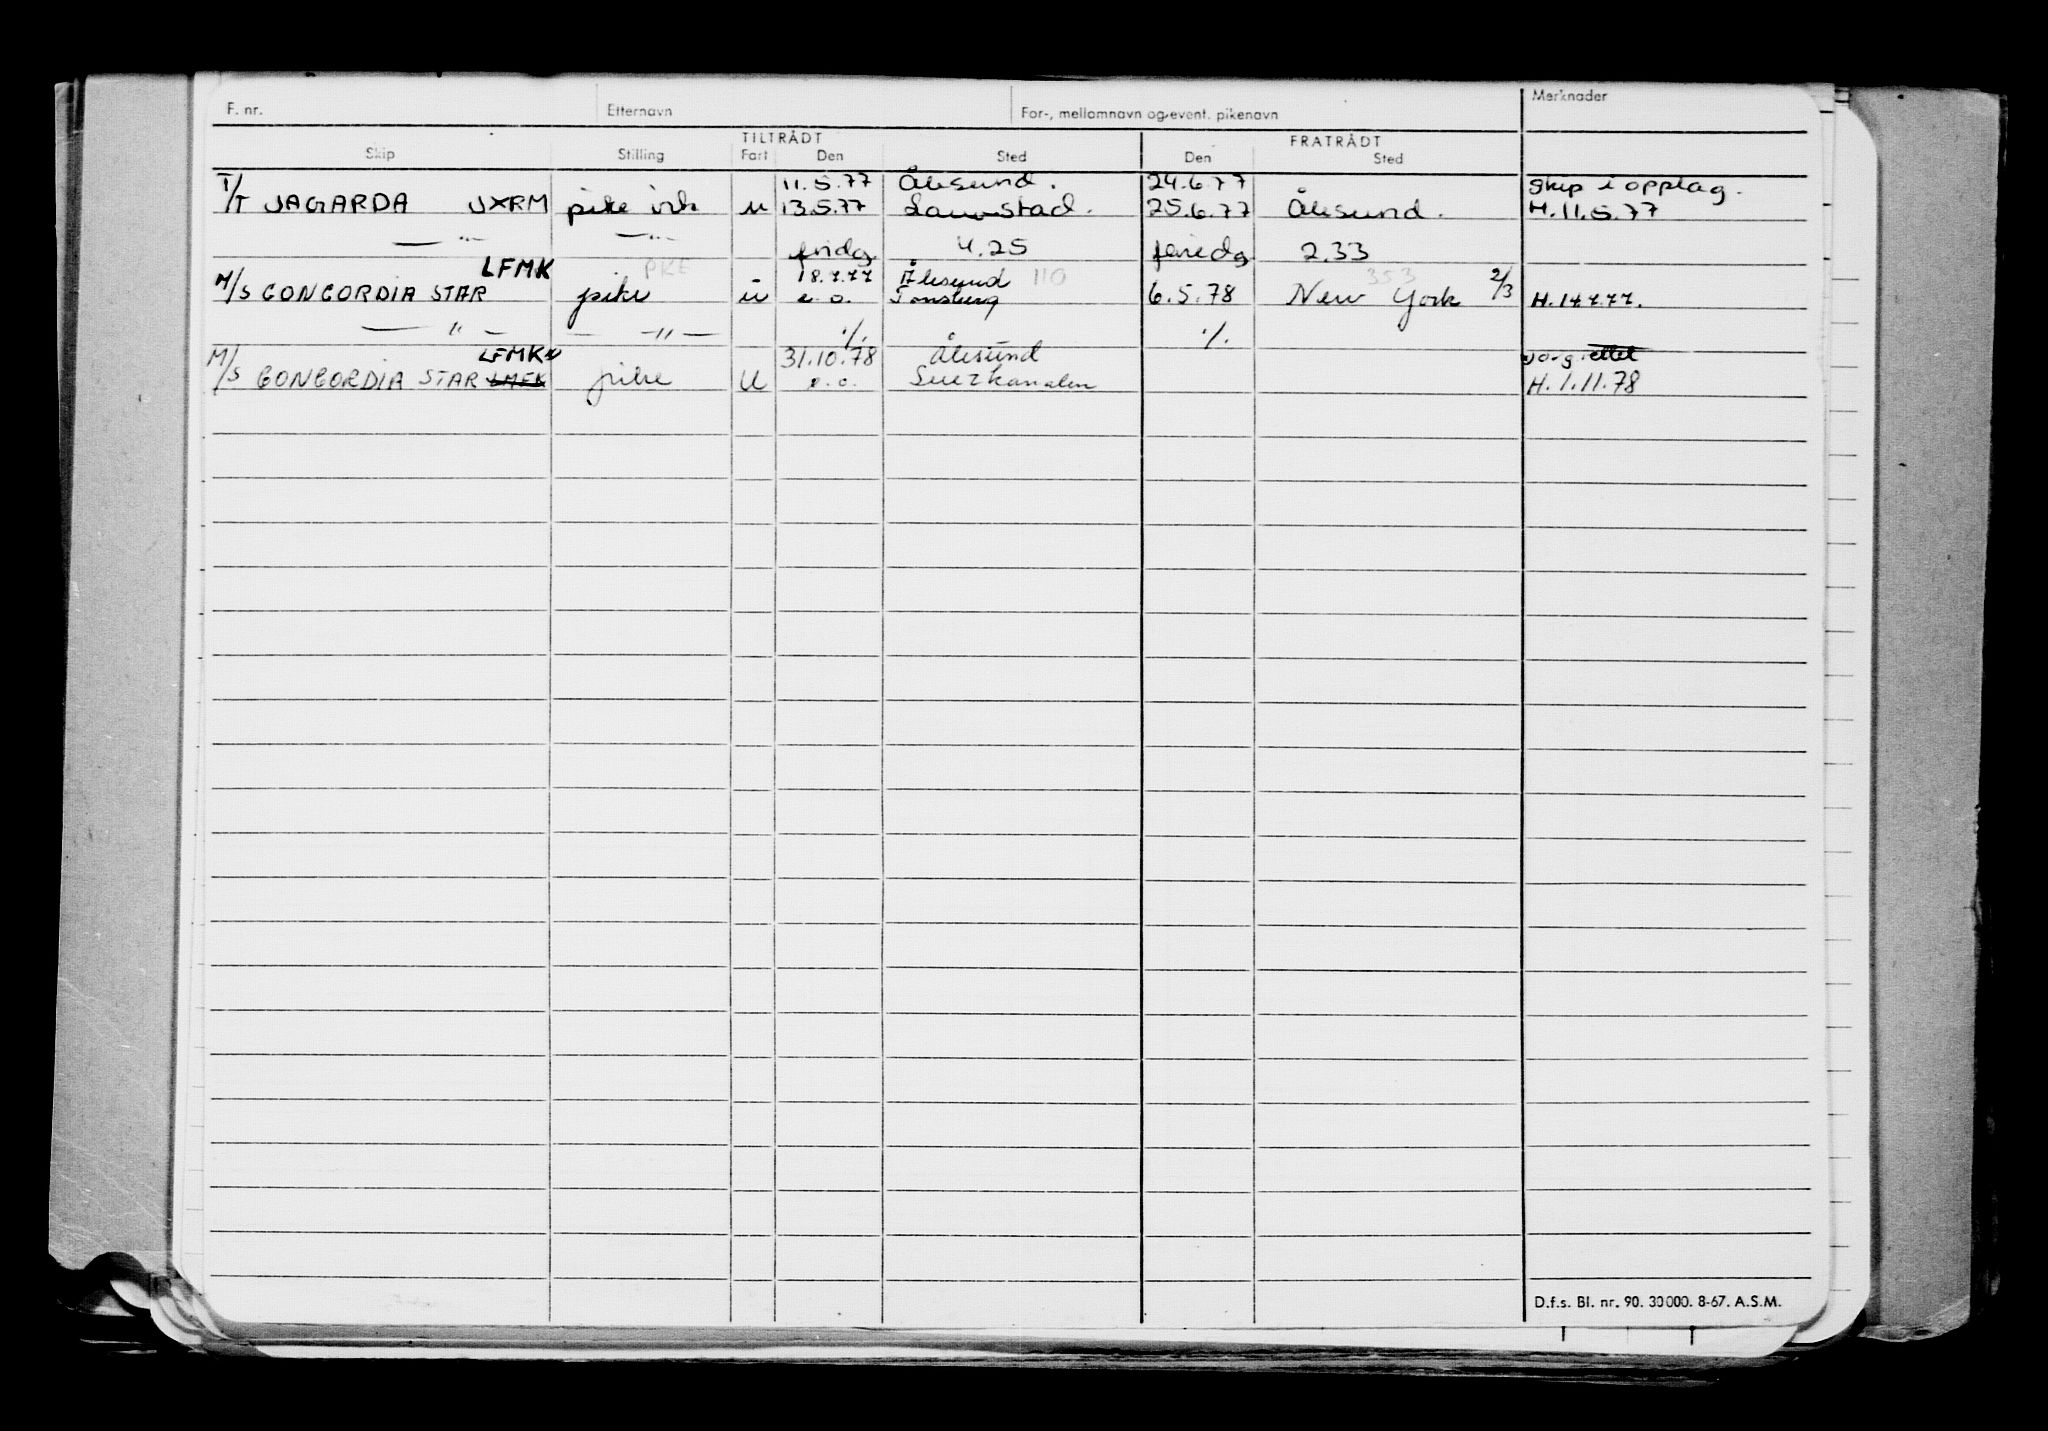 F. nr. Etternavn For-, mellomnavn og event. pikenavn Merknader
TILTRÅDT FRATRÅDT
Skip Stilling Fart Den Sted Den Sted
11.5.77 Ålesund. 24.6.77 Skip i opplag.
T/T JAGARDA JXRM pike u 13.5.77 Lauvstad. 25.6.77 Ålesund. H.11.5.77
— " — — " — fridg 4.25 feriedg 2.33
LFMK PKE 18.7.77 Ålesund 110 353
M/S CONCORDIA STAR pike u e.o. Tønsberg 6.5.78 New York 2/3 H.14.7.77.
— " — — " — ./. ./.
LFMK 31.10.78 Ålesund
M/S CONCORDIA STAR LMFK pike U e.o. Suezkanalen H.1.11.78
D.f.s. Bl. nr. 90. 30000. 8-67. A.S.M.